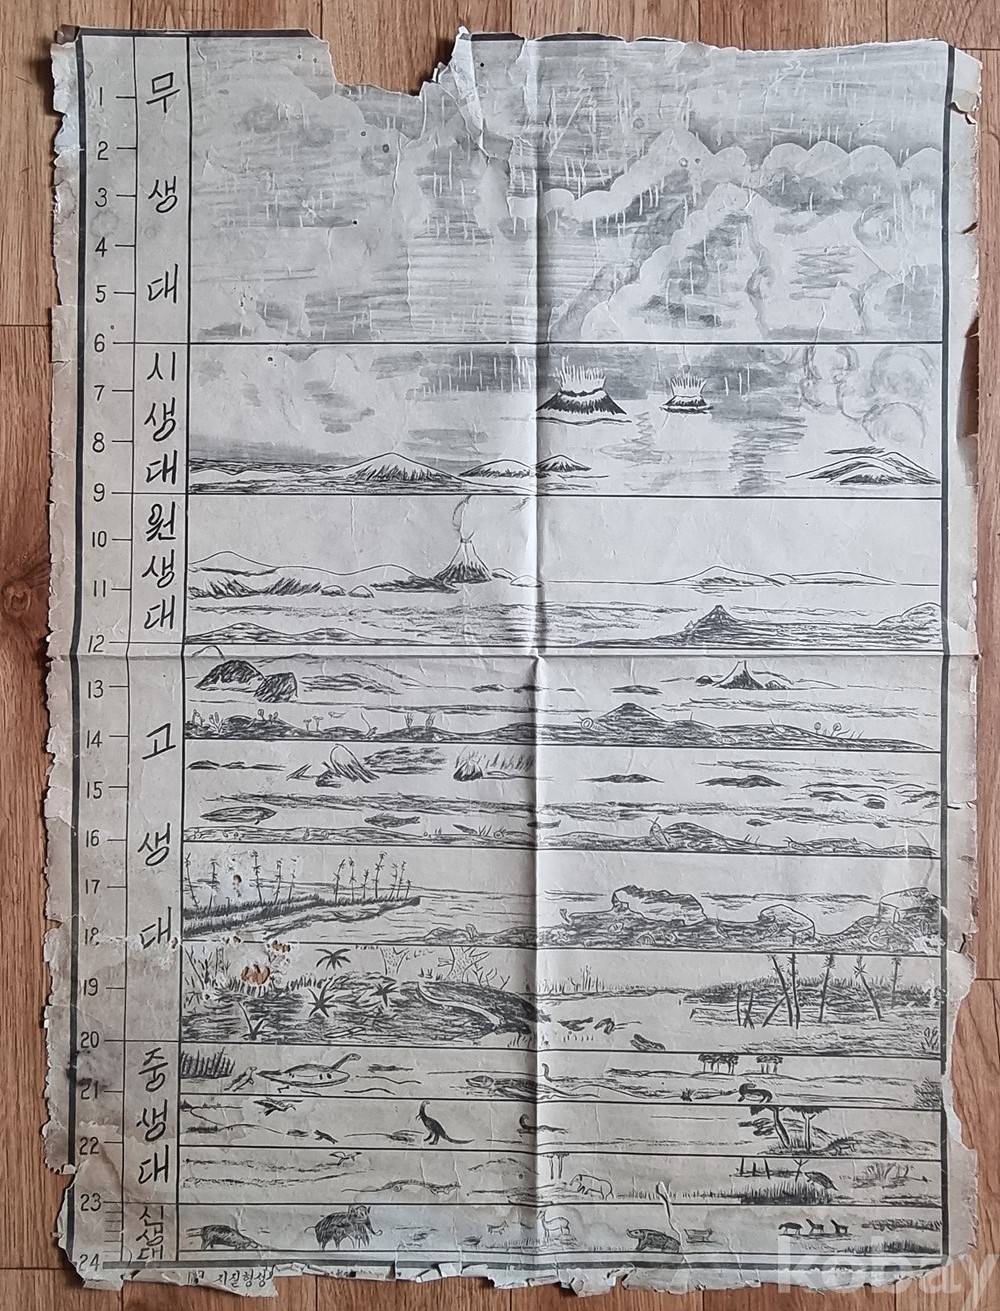 1
2
3
4
5
6
7
8
9
10
11
12
13
14
15
16
17
18
19
20
21
22
23
24
무생대
시생대
원생대
고생대
중생대
신생대
지질형성
kobay